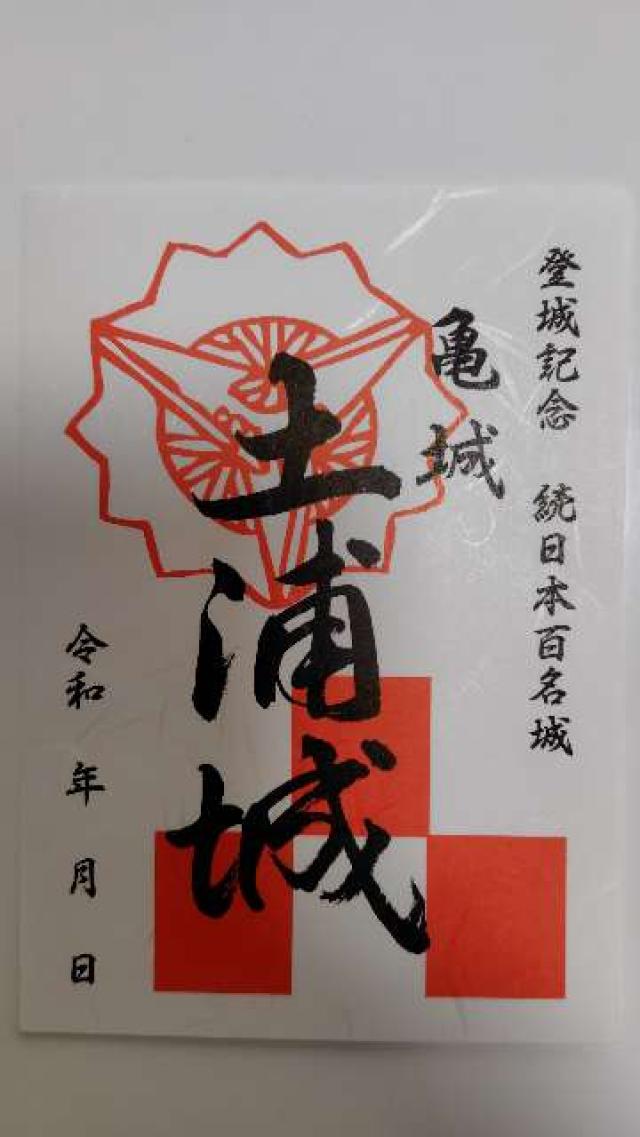 登城記念　続日本百名城
亀城
土浦城
令和　年　月　日